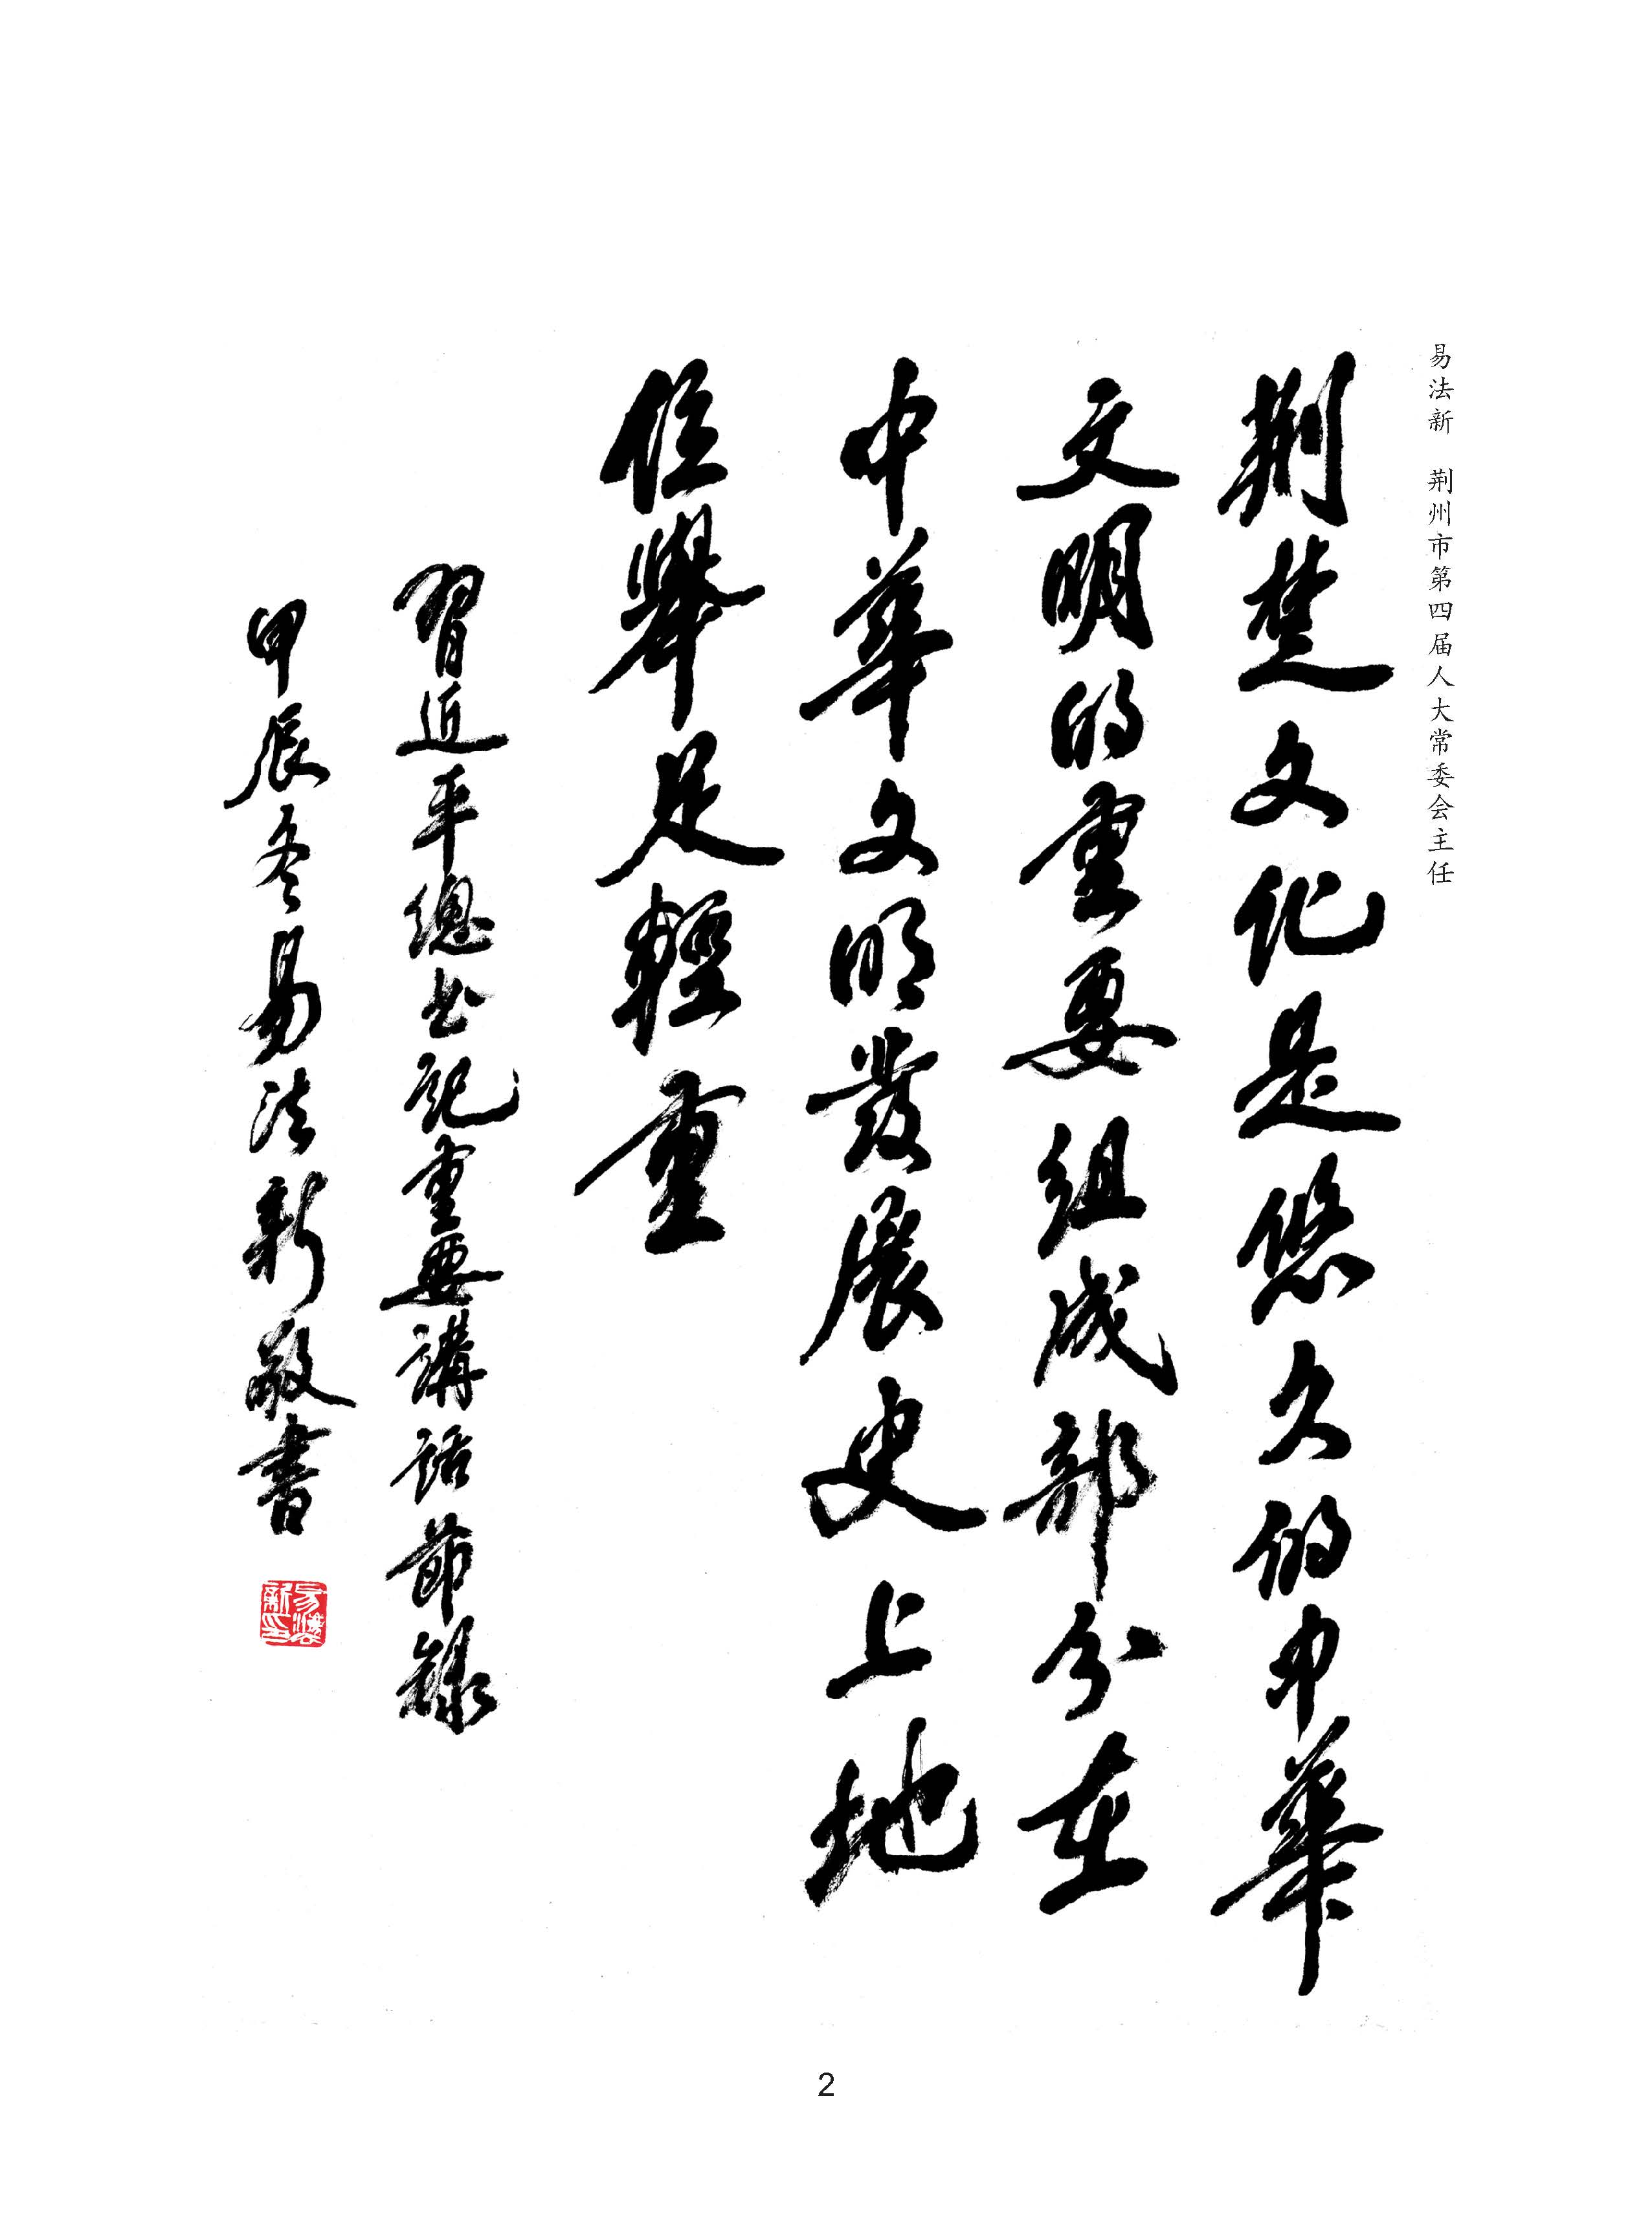 易法新　荆州市第四届人大常委会主任
荆楚文化是悠久的中華
文明的重要组成部分在
中華文明發展史上地
位舉足輕重
習近平總书记重要講話節錄
甲辰冬易法新敬書
易法新印
2